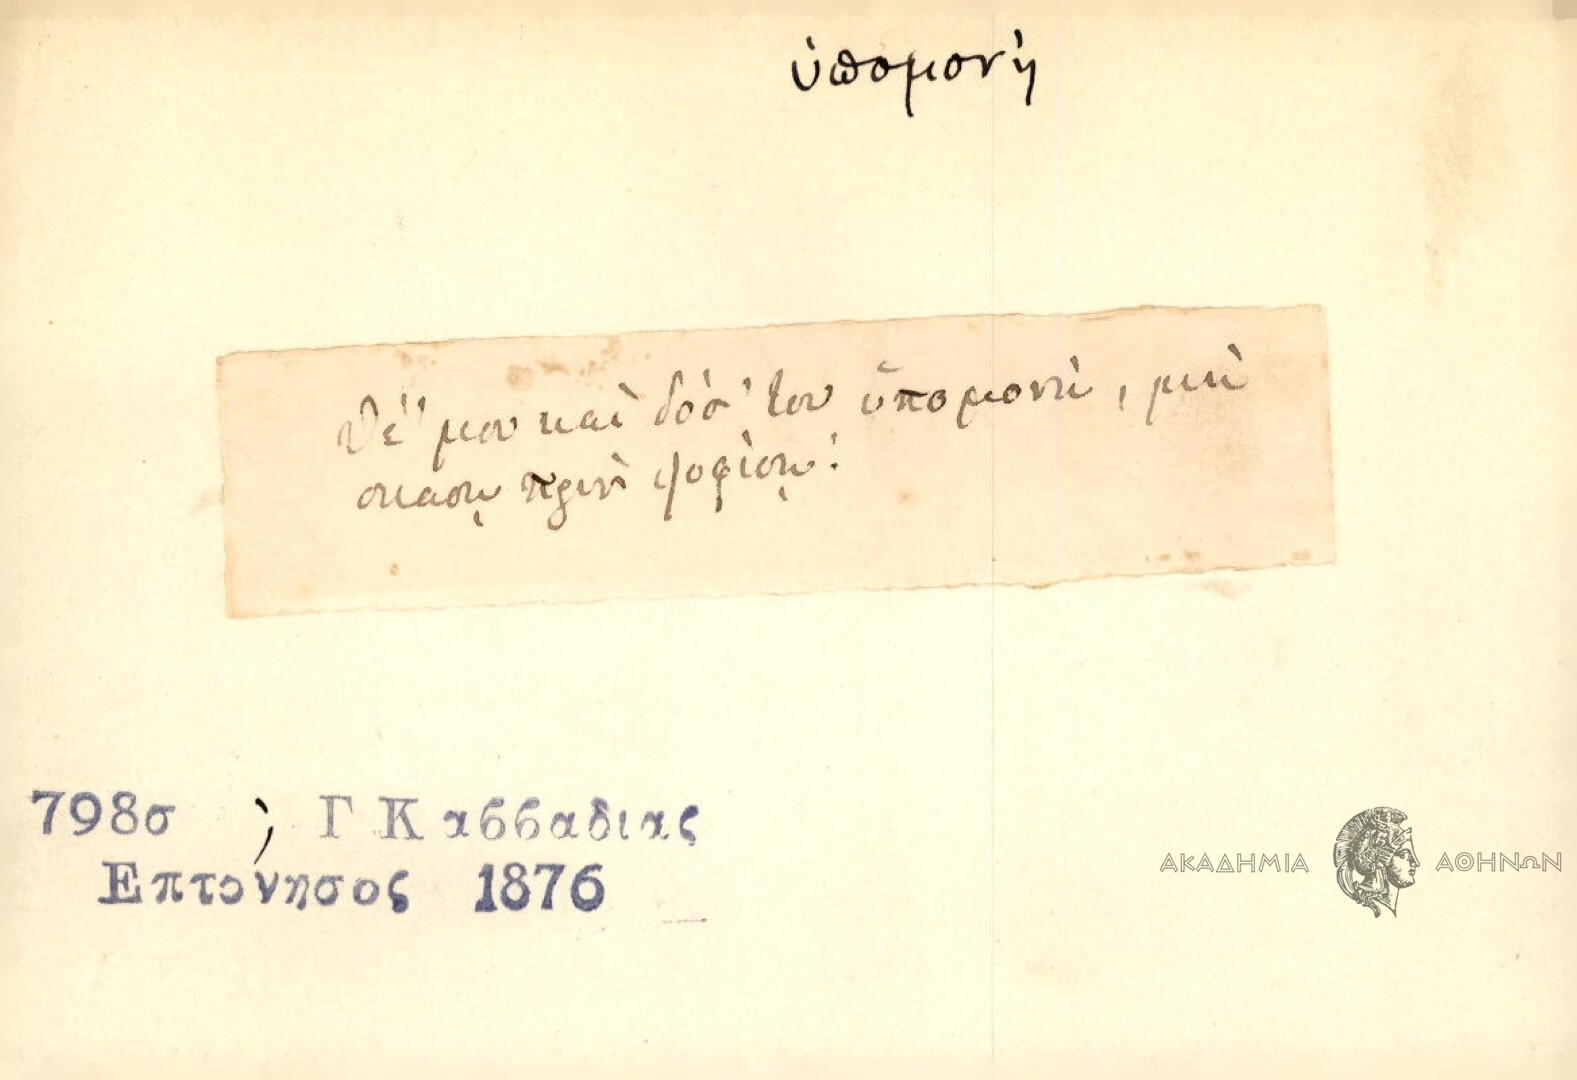 ὑπομονὴ
Θέ' μου καὶ δόσ' του ὑπομονὴ, μὴ
σκάσῃ πρὶν ψοφίσῃ!
798σ , Γ Καββαδιας
Επτονησος 1876
ΑΚΑΔΗΜΙΑ ΑΘΗΝΩΝ